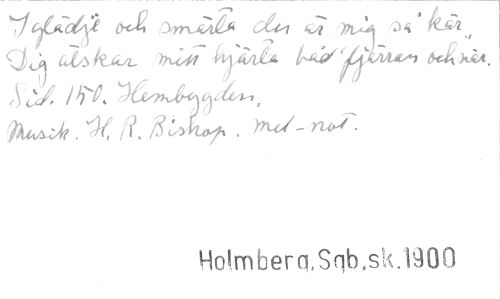 I glädje och smärta du är mig så kär,
Dig älskar mitt hjärta båd' fjärran och när.
Sid. 150. Hembygden,
Musik. H. R. Bishop. med-not.
Holmberg,Sgb,sk.1900